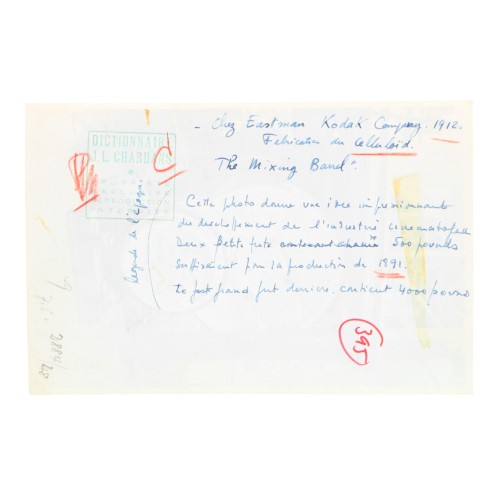 - Chez Eastman Kodak Company. 1912.
Fabrication du Celluloïd.
"The Mixing Barrel".
Cette photo donne une idée impressionnante
du développement de l'industrie cinématographique
Deux petits futs contenant chacun 500 pounds
suffisaient pour la production de 1891.
Le plus grand fut derrière, contient 4000 pounds
DICTIONNAIRE
J. L. CHARDANS
Légende de l'époque
395